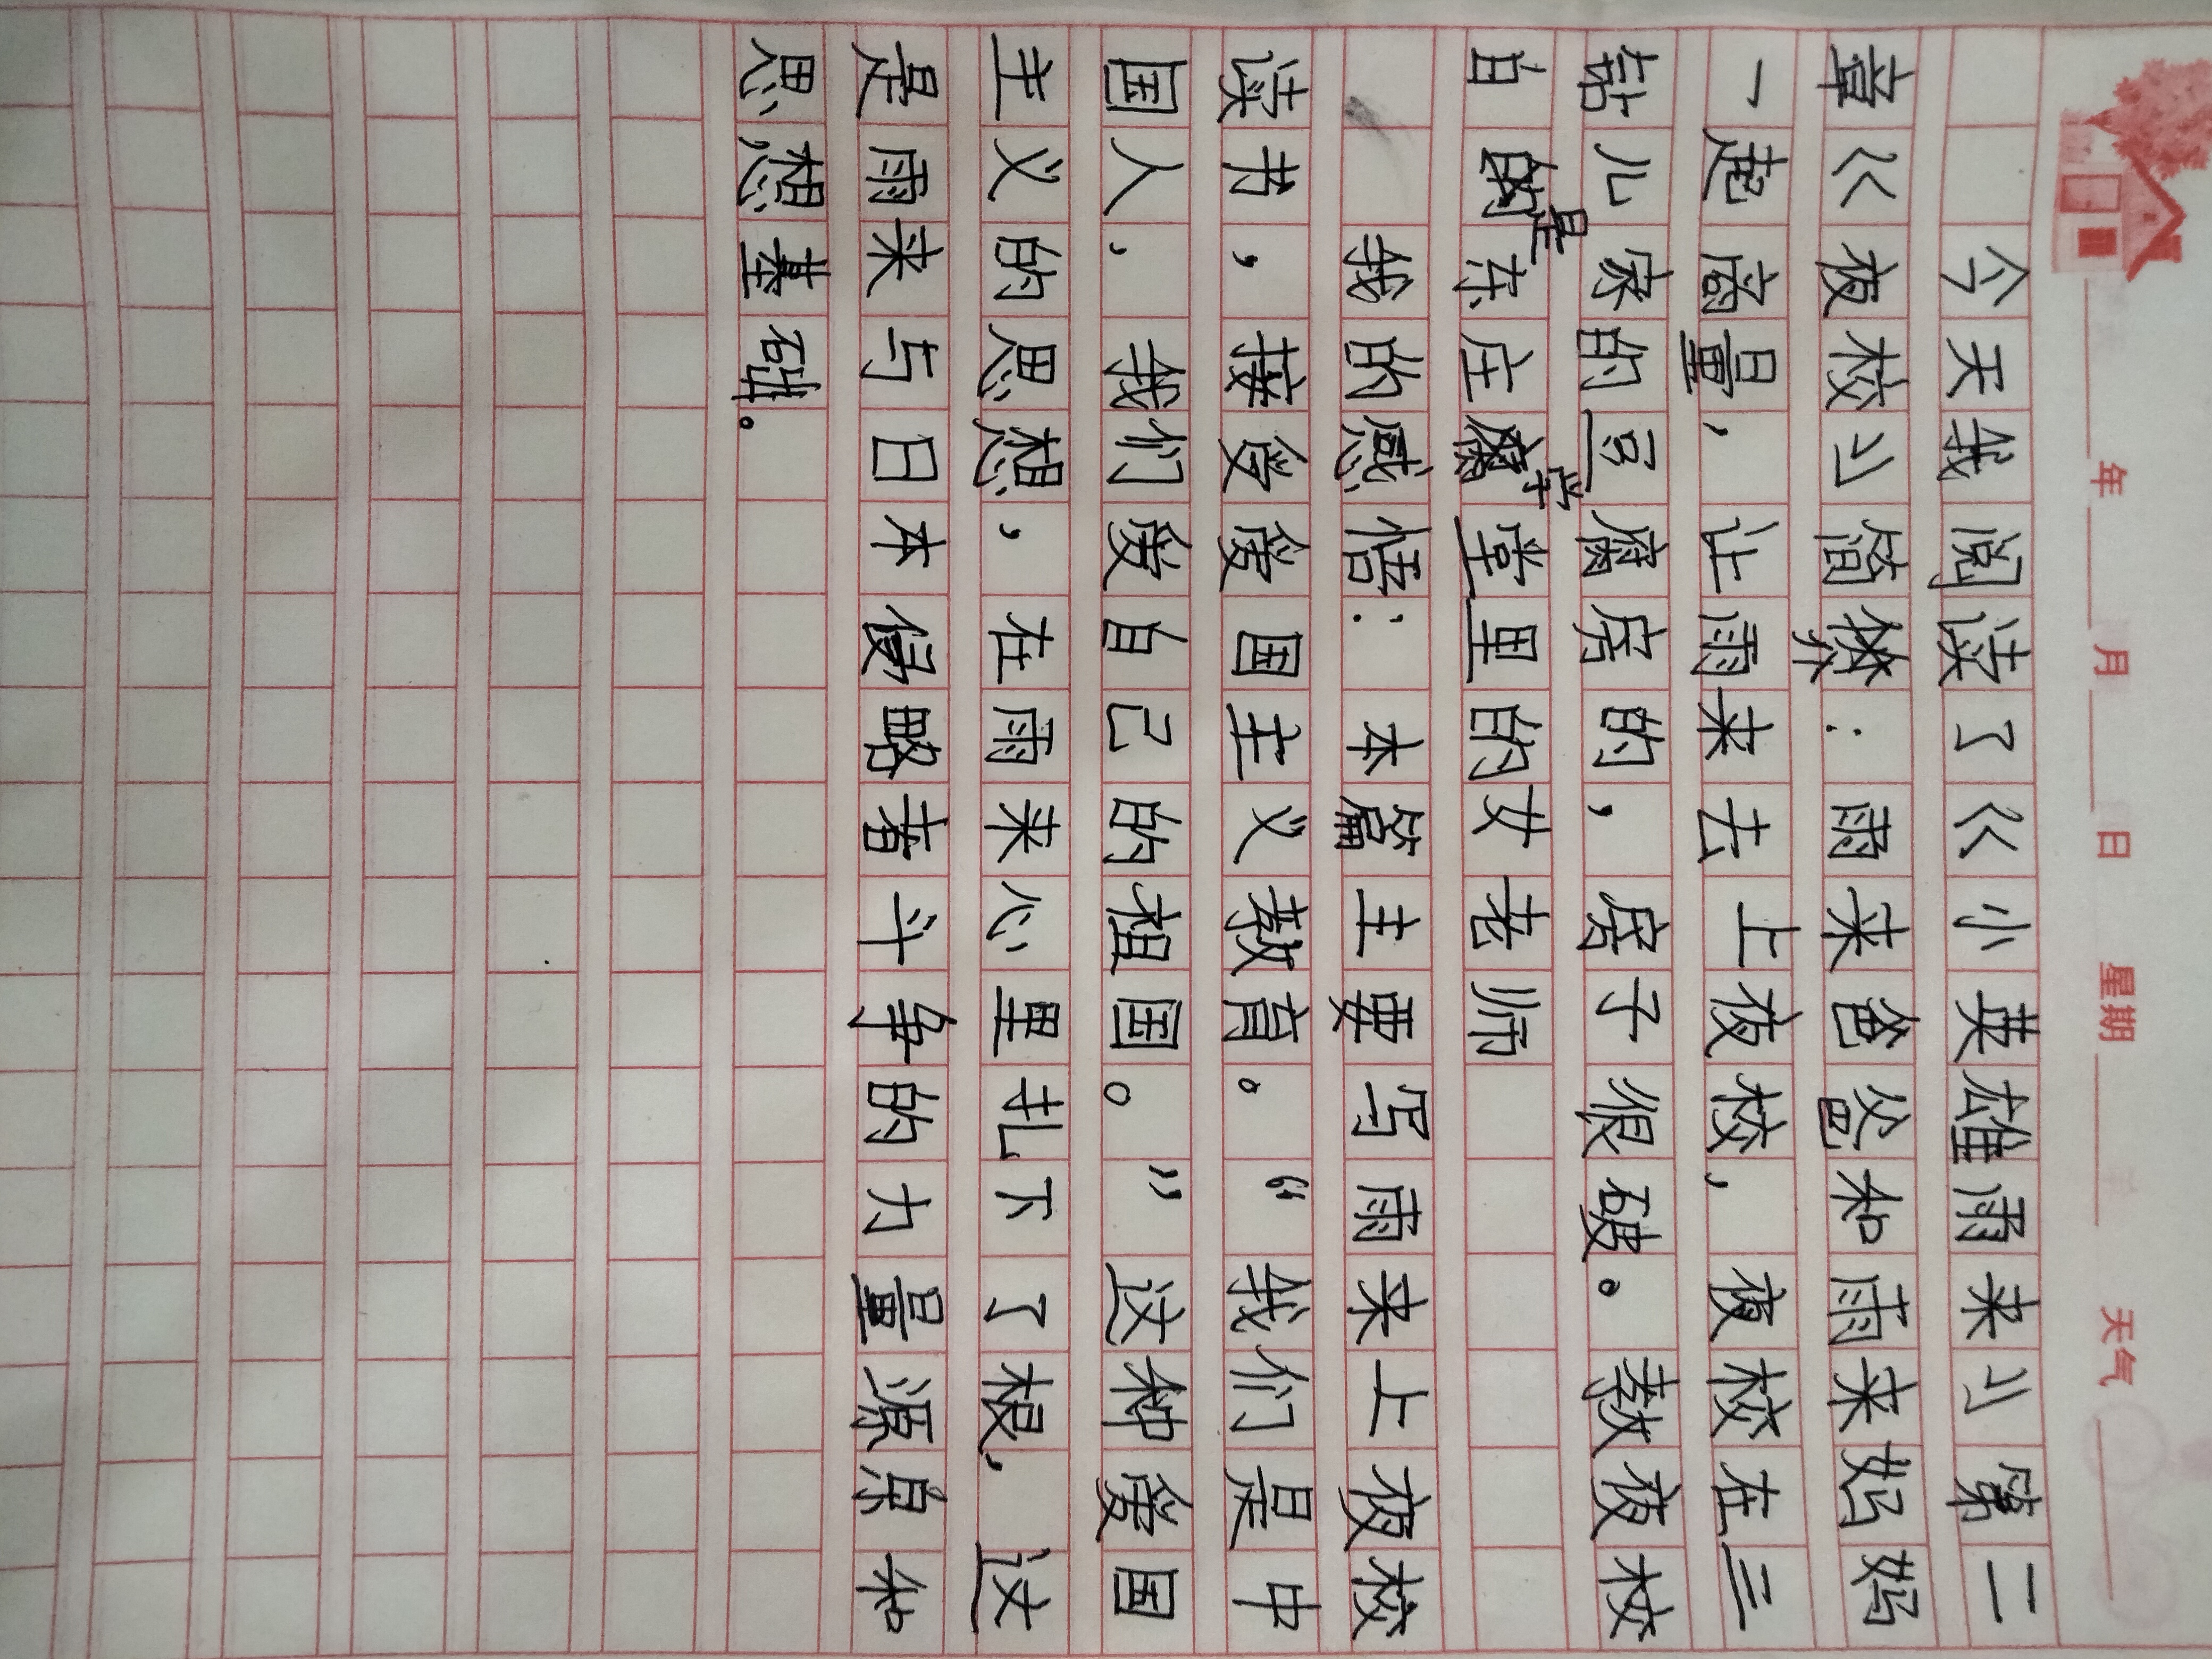 年 月 日 星期 天气
今天我阅读了《小英雄雨来》第二
章《夜校》简介：雨来爸爸和雨来妈妈
一起商量，让雨来去上夜校，夜校在三
钻儿家的豆腐房的，房子很破。教夜校
自的是东庄学堂里的女老师
我的感悟：本篇主要写雨来上夜校
读书，接受爱国主义教育。“我们是中
国人，我们爱自己的祖国。”这种爱国
主义的思想，在雨来心里扎下了根，这
是雨来与日本侵略者斗争的力量源泉和
思想基础。